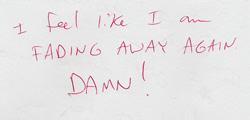 I feel like I am
FADING AWAY AGAIN
DAMN!